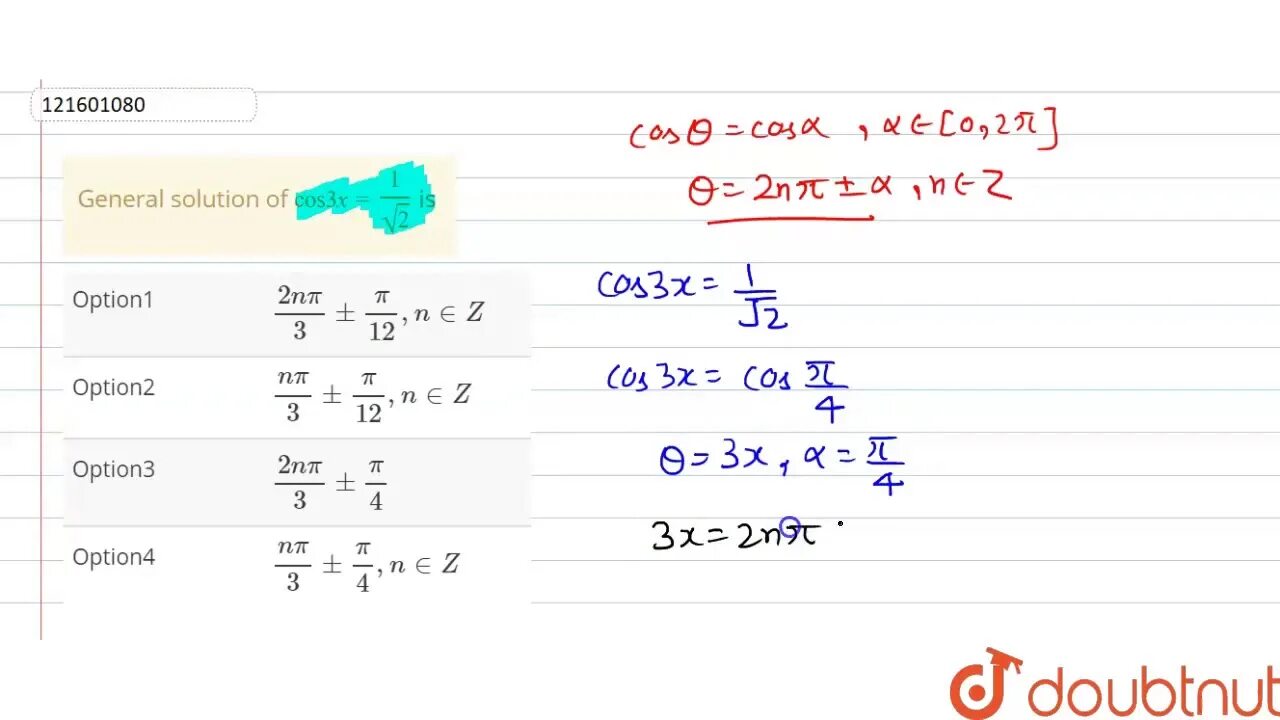 121601080
General solution of cos3x = 1/√2 is
Option1 2nπ/3 ± π/12, n ∈ Z
Option2 nπ/3 ± π/12, n ∈ Z
Option3 2nπ/3 ± π/4
Option4 nπ/3 ± π/4, n ∈ Z
cosθ = cosα , α ∈ [0, 2π]
θ = 2nπ ± α , n ∈ Z
cos3x = 1/√2
cos3x = cos π/4
θ = 3x , α = π/4
3x = 2nπ
doubtnut